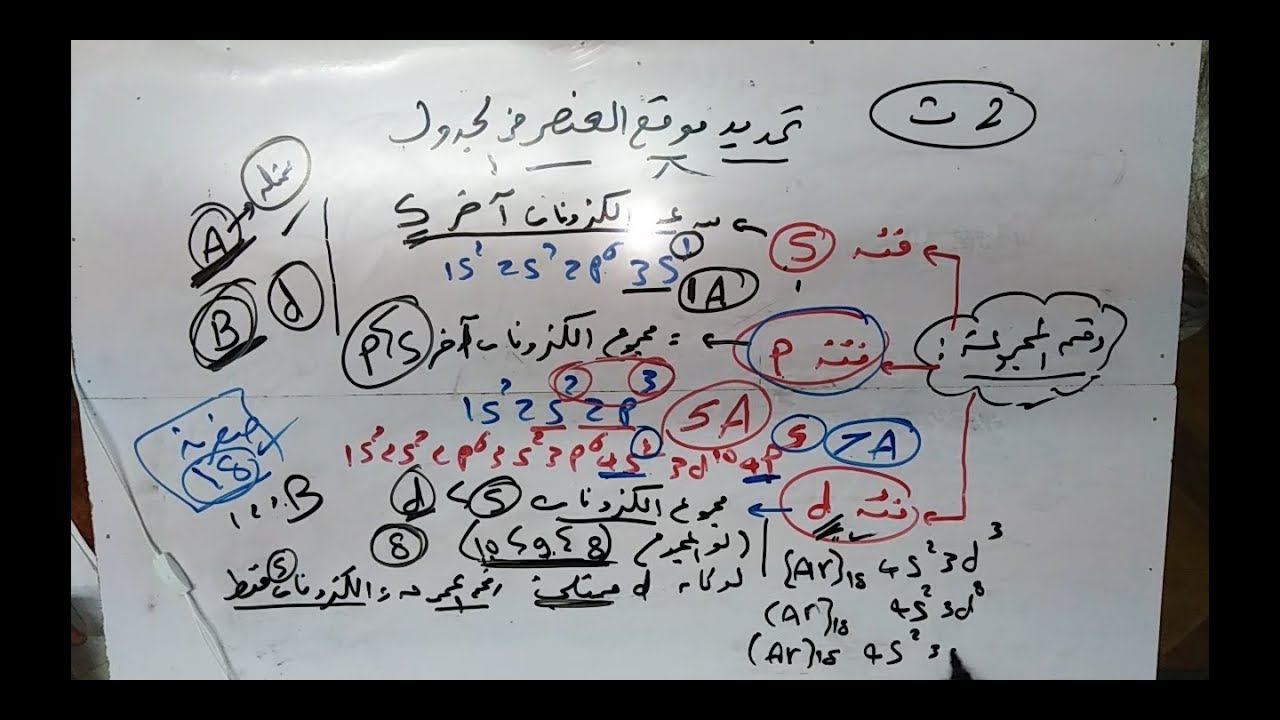 2 ث
تحديد موقع العنصر في الجدول
رقم المجموعة :
فئة S ← عدد الكترونات آخر S
1S² 2S² 2P⁶ 3S¹
1A
فئة P ← = مجموع الكترونات آخر S و P
1S² 2S² 2P³
5A
1S² 2S² 2P⁶ 3S² 3P⁶ 4S² 3d¹⁰ 4P⁵
7A
فئة d ← مجموع الكترونات S و d
B
(لو المجموع 8 و 9 و 10) 8
لو كانت d ممتلئة رقم المجموعة = الكترونات S فقط
(Ar)₁₈ 4S² 3d³
(Ar)₁₈ 4S² 3d⁸
(Ar)₁₈ 4S² 3
A
B d
18